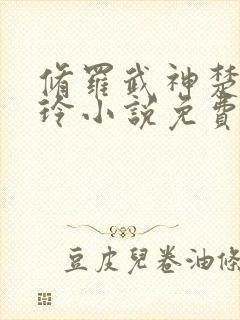 脩羅武神楚
玲小說免費
豆皮兒卷油條